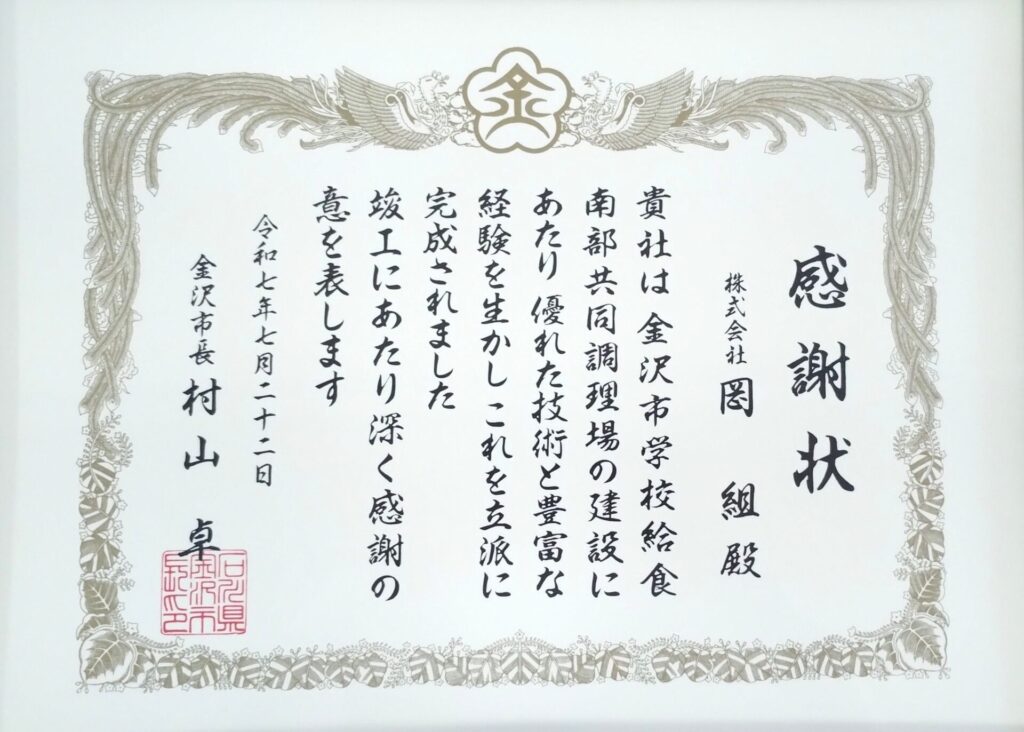 感謝状
株式会社 岡 組 殿
貴社は 金沢市学校給食
南部共同調理場の建設に
あたり 優れた技術と豊富な
経験を生かし これを立派に
完成されました
竣工にあたり深く感謝の
意を表します
令和七年七月二十二日
金沢市長 村山 卓
石川県
金沢市
長印